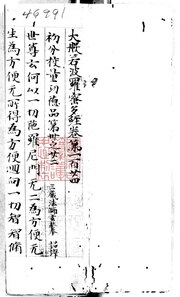 46991
大般若波羅蜜多經卷第一百廿四
初分校量功德品第卅之廿二
三藏法師玄奘 詔譯
世尊云何以一切陁羅尼門无二為方便无
生為方便无所得為方便迴向一切智智脩